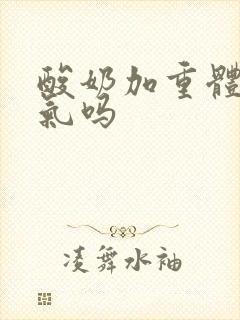 酸奶加重體
氣吗
凌舞水袖